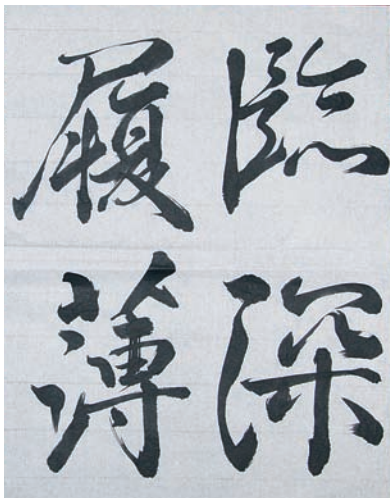 臨深
履薄